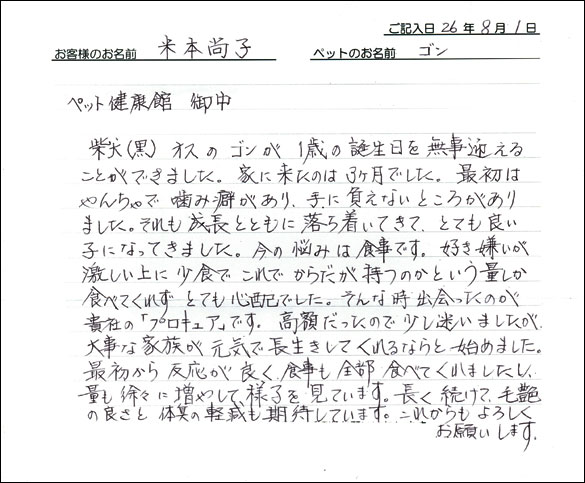 ご記入日 26年 8月 1日
お客様のお名前 米本尚子 ペットのお名前 ゴン
ペット健康館 御中
柴犬(黒)オスのゴンが 1歳の誕生日を無事迎える
ことができました。家に来たのは3ヶ月でした。最初は
やんちゃで噛み癖があり、手に負えないところがあり
ました。それも成長とともに落ち着いてきて、とても良い
子になってきました。今の悩みは食事です。好き嫌いが
激しい上に少食で これでからだが持つのかという量しか
食べてくれず とても心配でした。そんな時出会ったのが
貴社の「プロキュア」です。高額だったので少し迷いましたが、
大事な家族が元気で長生きしてくれるならと始めました。
最初から反応が良く、食事も全部食べてくれましたし、
量も徐々に増やして様子を見ています。長く続けて、毛艶
の良さと 体臭の軽減も期待しています。これからもよろしく
お願いします。